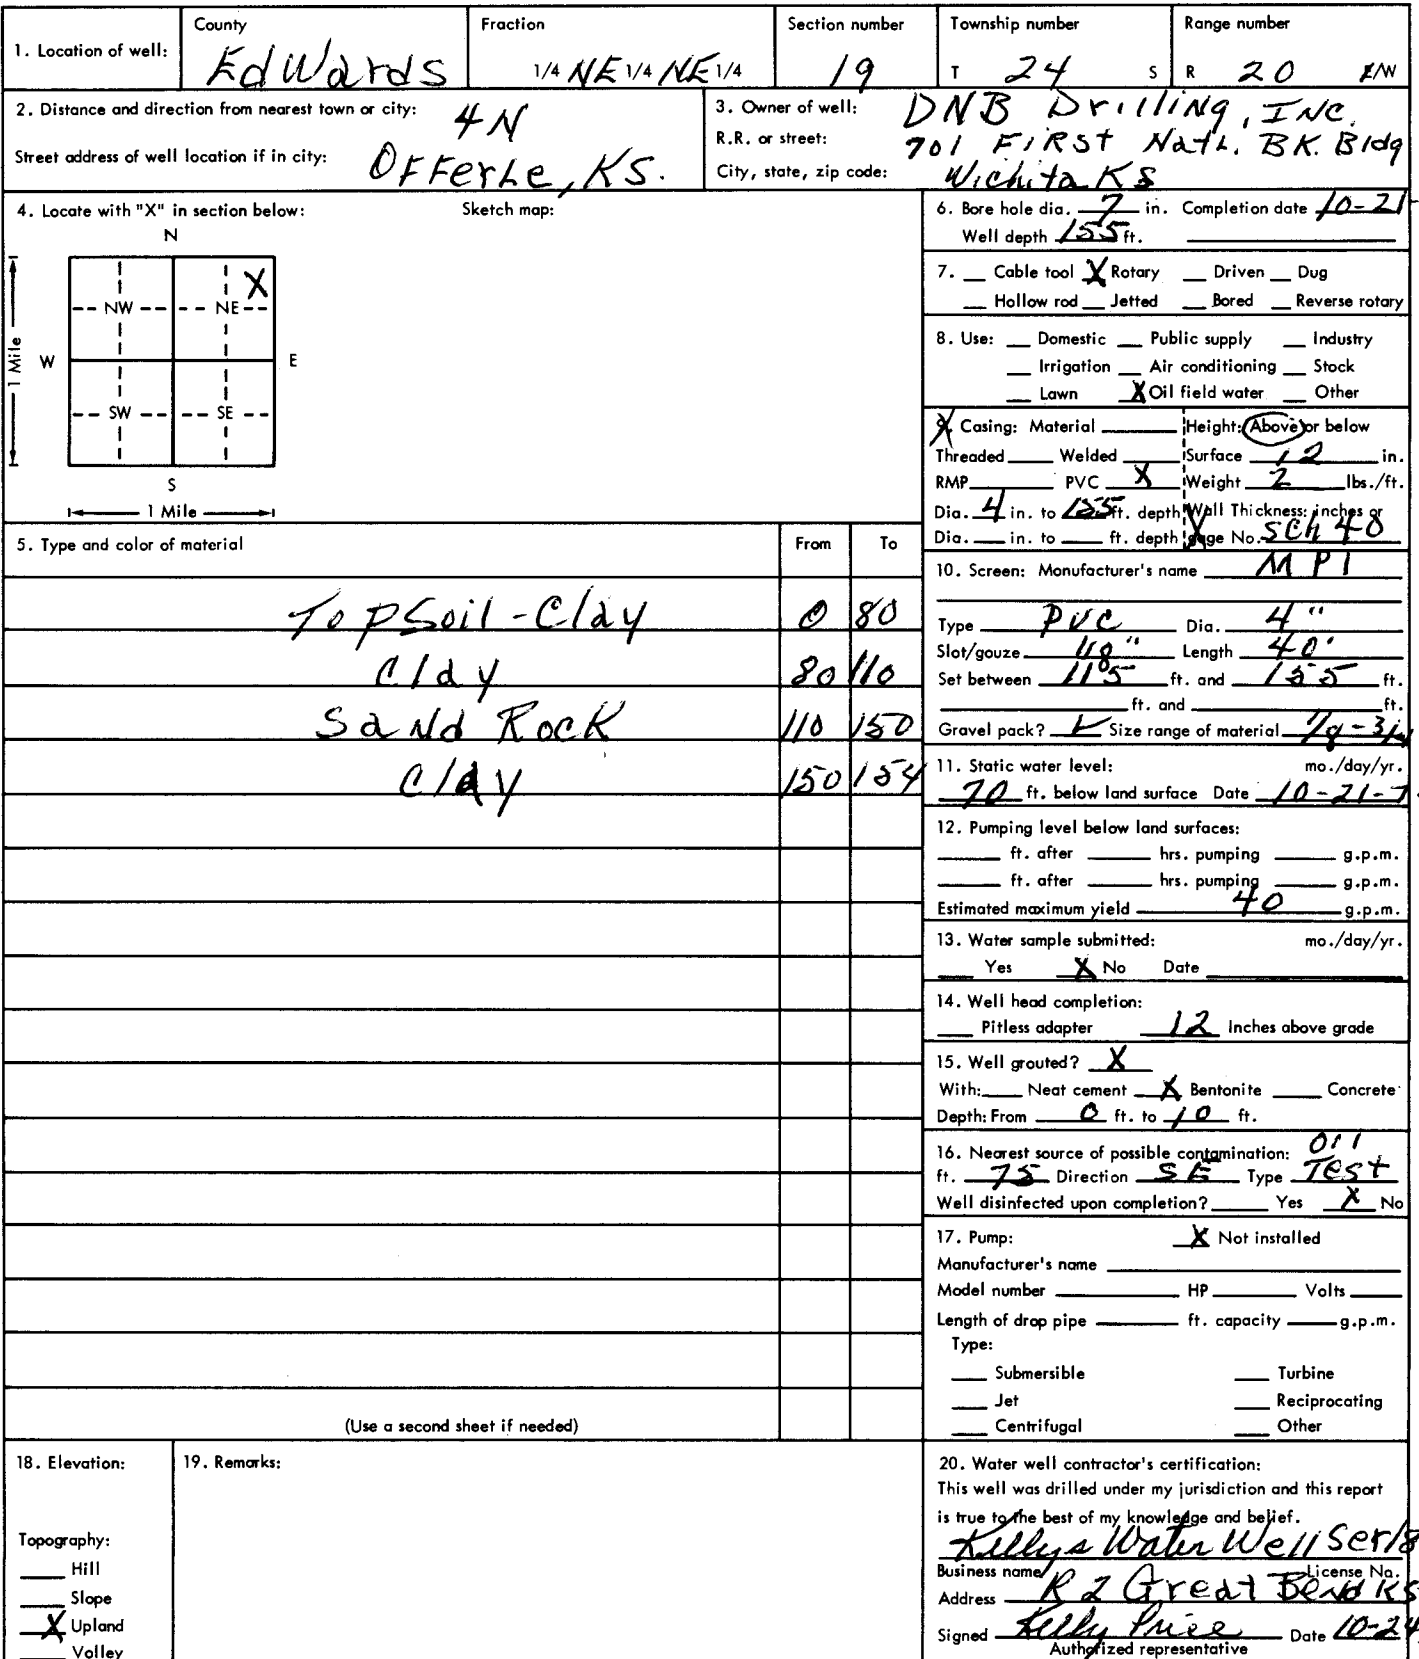 1. Location of well:
County
EdWards
Fraction
1/4 NE 1/4 NE 1/4
Section number
19
Township number
T 24 S
Range number
R 20 E/W
2. Distance and direction from nearest town or city: 4N
Street address of well location if in city: OFFerLe, KS.
3. Owner of well: DNB Drilling, INC.
R.R. or street: 701 FiRSt Natl. BK. Bldg
City, state, zip code: Wichita KS
4. Locate with "X" in section below:
Sketch map:
N
X
NW NE
W E
1 Mile
SW SE
S
1 Mile
5. Type and color of material From To
TopSoil - Clay 0 80
Clay 80 110
Sand Rock 110 150
Clay 150 154
(Use a second sheet if needed)
6. Bore hole dia. 7 in. Completion date 10-21-
Well depth 155 ft.
7. Cable tool X Rotary Driven Dug
Hollow rod Jetted Bored Reverse rotary
8. Use: Domestic Public supply Industry
Irrigation Air conditioning Stock
Lawn X Oil field water Other
9. Casing: Material Height: Above or below
Threaded Welded Surface 12 in.
RMP PVC X Weight 2 lbs./ft.
Dia. 4 in. to 155 ft. depth Wall Thickness: inches or
Dia. in. to ft. depth gage No. Sch 40
10. Screen: Manufacturer's name MPI
Type PVC Dia. 4"
Slot/gouze 1/8" Length 40'
Set between 115 ft. and 155 ft.
ft. and ft.
Gravel pack? Size range of material 1/8 - 3/4
11. Static water level: mo./day/yr.
70 ft. below land surface Date 10-21-7
12. Pumping level below land surfaces:
ft. after hrs. pumping g.p.m.
ft. after hrs. pumping g.p.m.
Estimated maximum yield 40 g.p.m.
13. Water sample submitted: mo./day/yr.
Yes X No Date
14. Well head completion:
Pitless adapter 12 Inches above grade
15. Well grouted? X
With: Neat cement X Bentonite Concrete
Depth: From 0 ft. to 10 ft.
16. Nearest source of possible contamination: Oil
ft. 75 Direction SE Type Test
Well disinfected upon completion? Yes X No
17. Pump: X Not installed
Manufacturer's name
Model number HP Volts
Length of drop pipe ft. capacity g.p.m.
Type:
Submersible Turbine
Jet Reciprocating
Centrifugal Other
18. Elevation:
Topography:
Hill
Slope
X Upland
Valley
19. Remarks:
20. Water well contractor's certification:
This well was drilled under my jurisdiction and this report
is true to the best of my knowledge and belief.
Kellys Water Well Ser 18
Business name License No.
Address R 2 Great Bend KS
Signed Kelly Price Date 10-24
Authorized representative